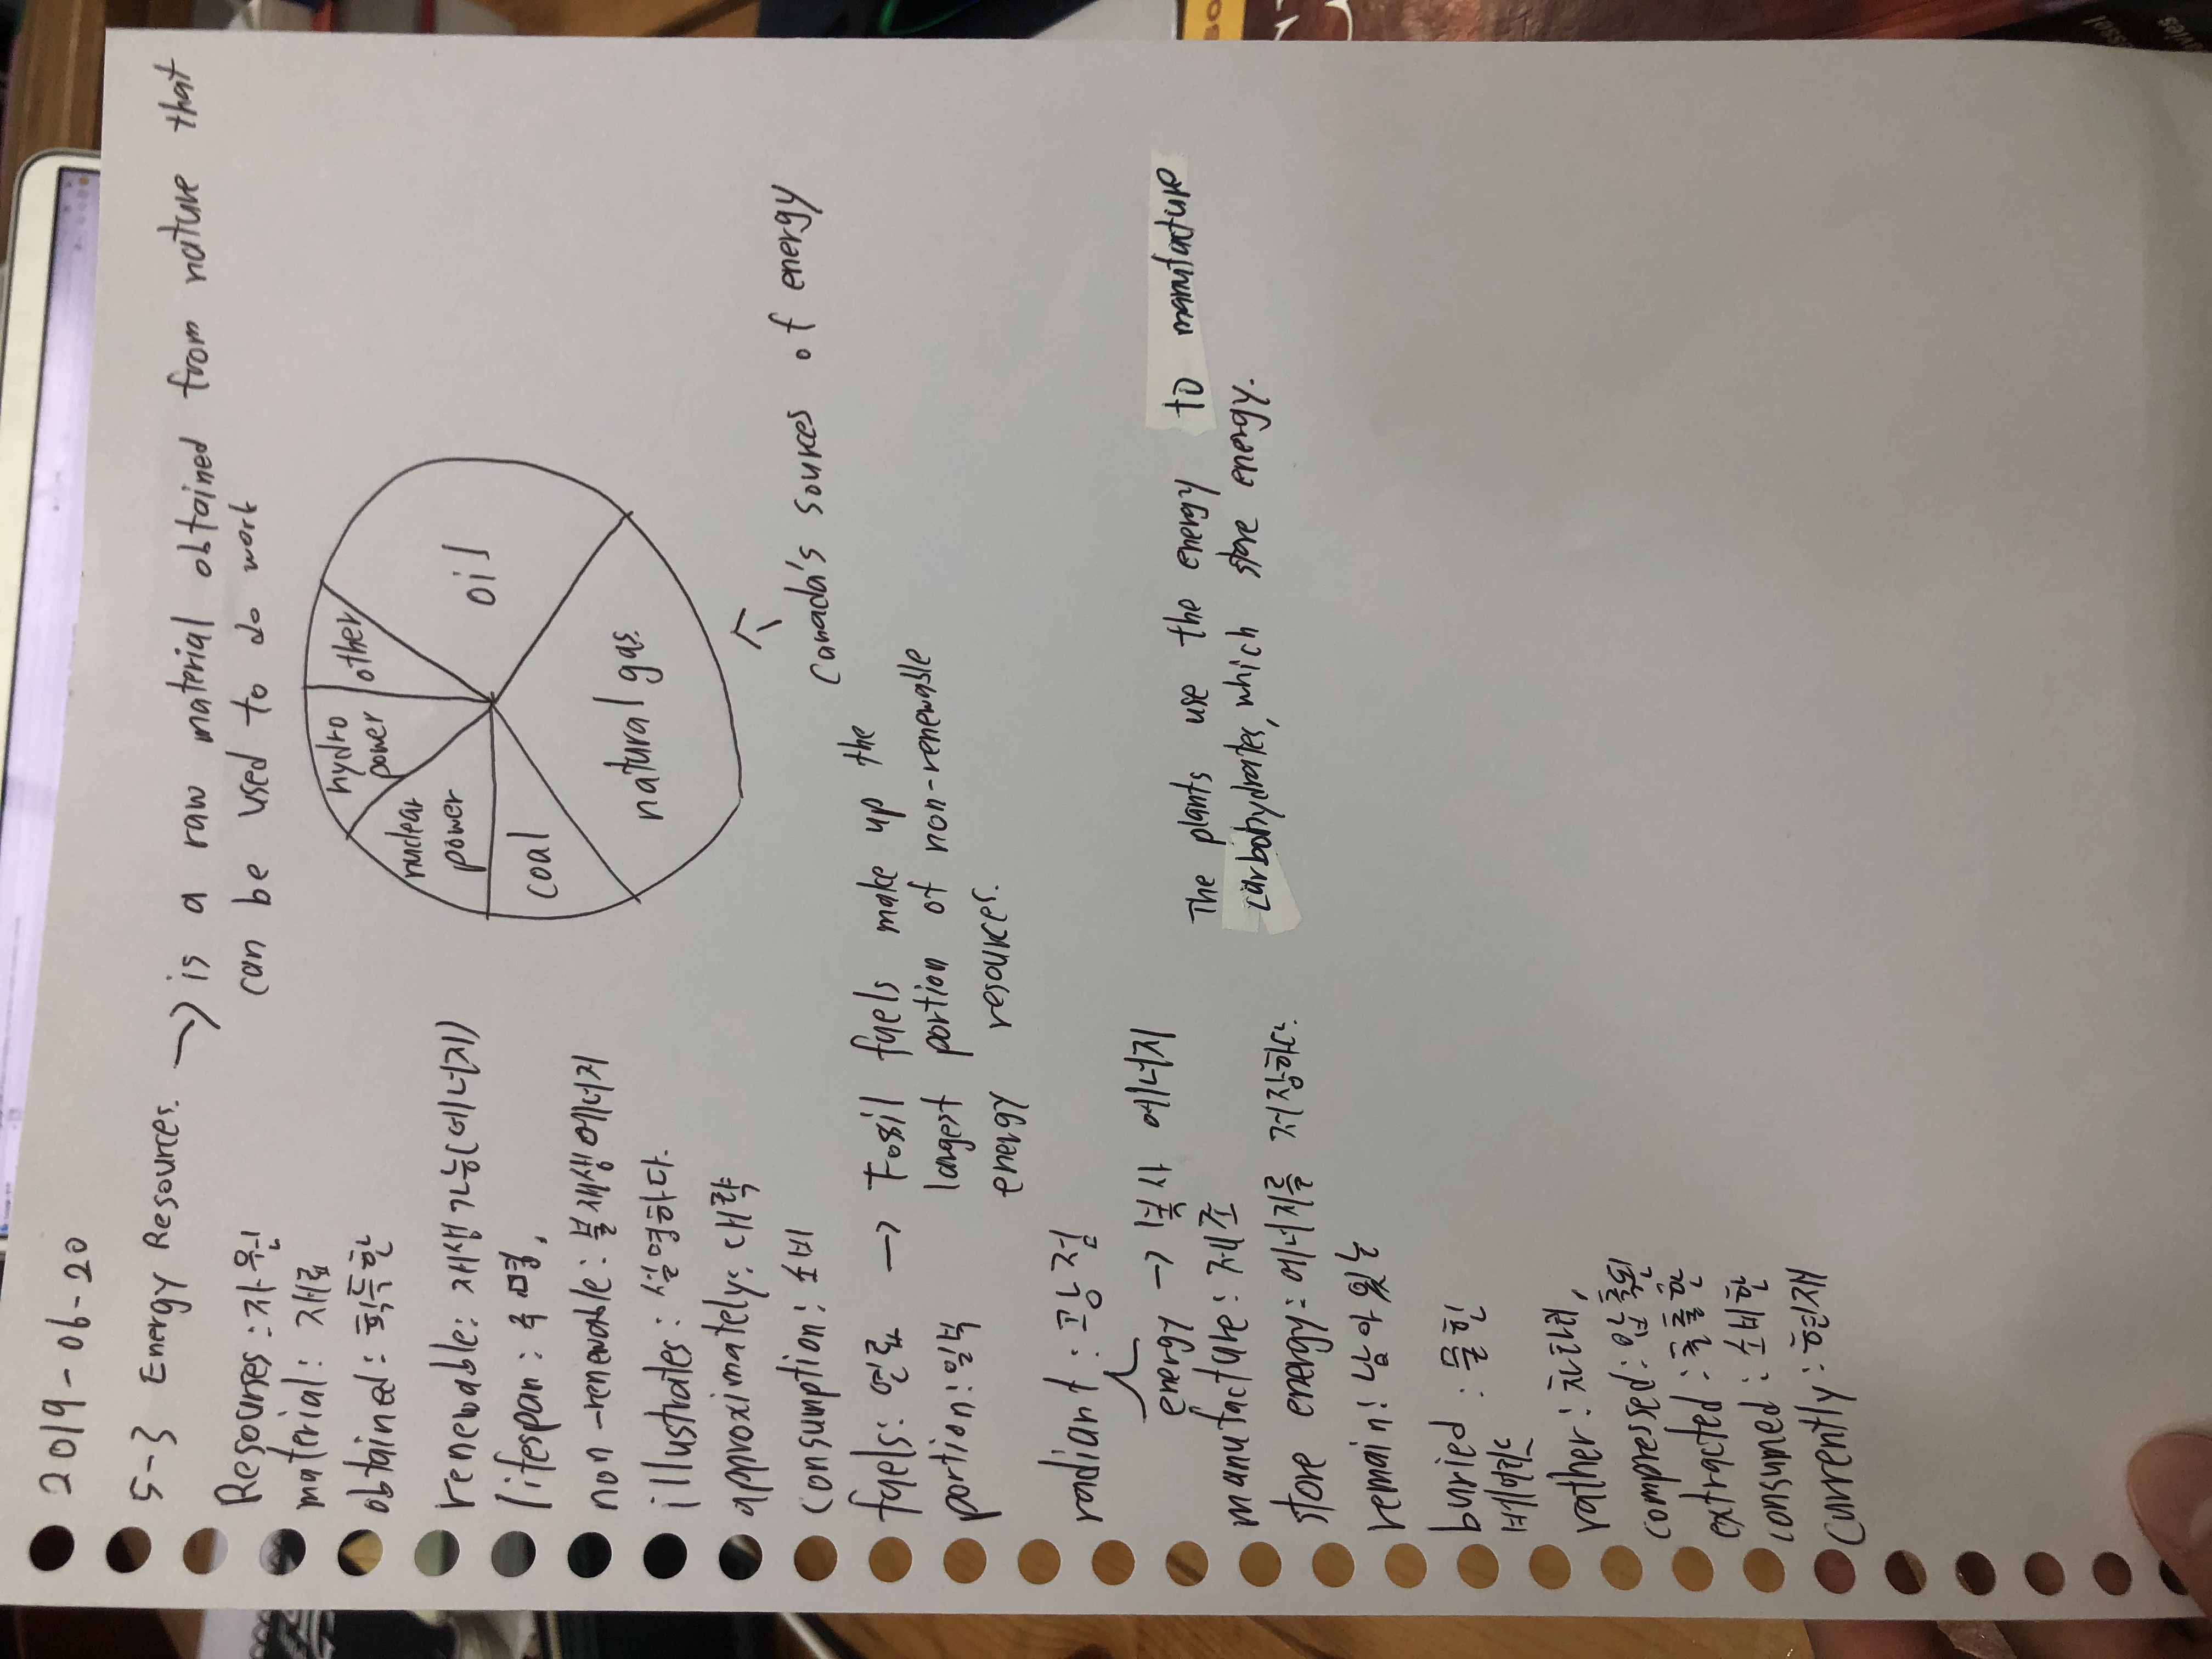 2019-06-20
5-3 Energy Resources. → is a raw material obtained from nature that
can be used to do work
Resources: 자원
material: 재료
obtained: 획득한
renewable: 재생가능(에너지)
lifespan: 수명,
non-renewable: 불재생에너지
illustrates: 설명하다.
approximately: 대략
consumption: 소비
other
hydro
power
nuclear
power
oil
coal
natural gas
Canada's sources of energy
fuels: 연료 → Fossil fuels make up the
portion: 일부
largest portion of non-renewable
energy resources.
radiant: 광점
energy → 복사 에너지
manufacture: 제조
store energy: 에너지를 저장하다.
The plants use the energy to manufacture
carbohydrates, which store energy.
remain: 남아있는
buried: 묻힌
rather: 차라리,
compressed: 압축된
extracted: 추출한
consumed: 소비한
currently: 현재